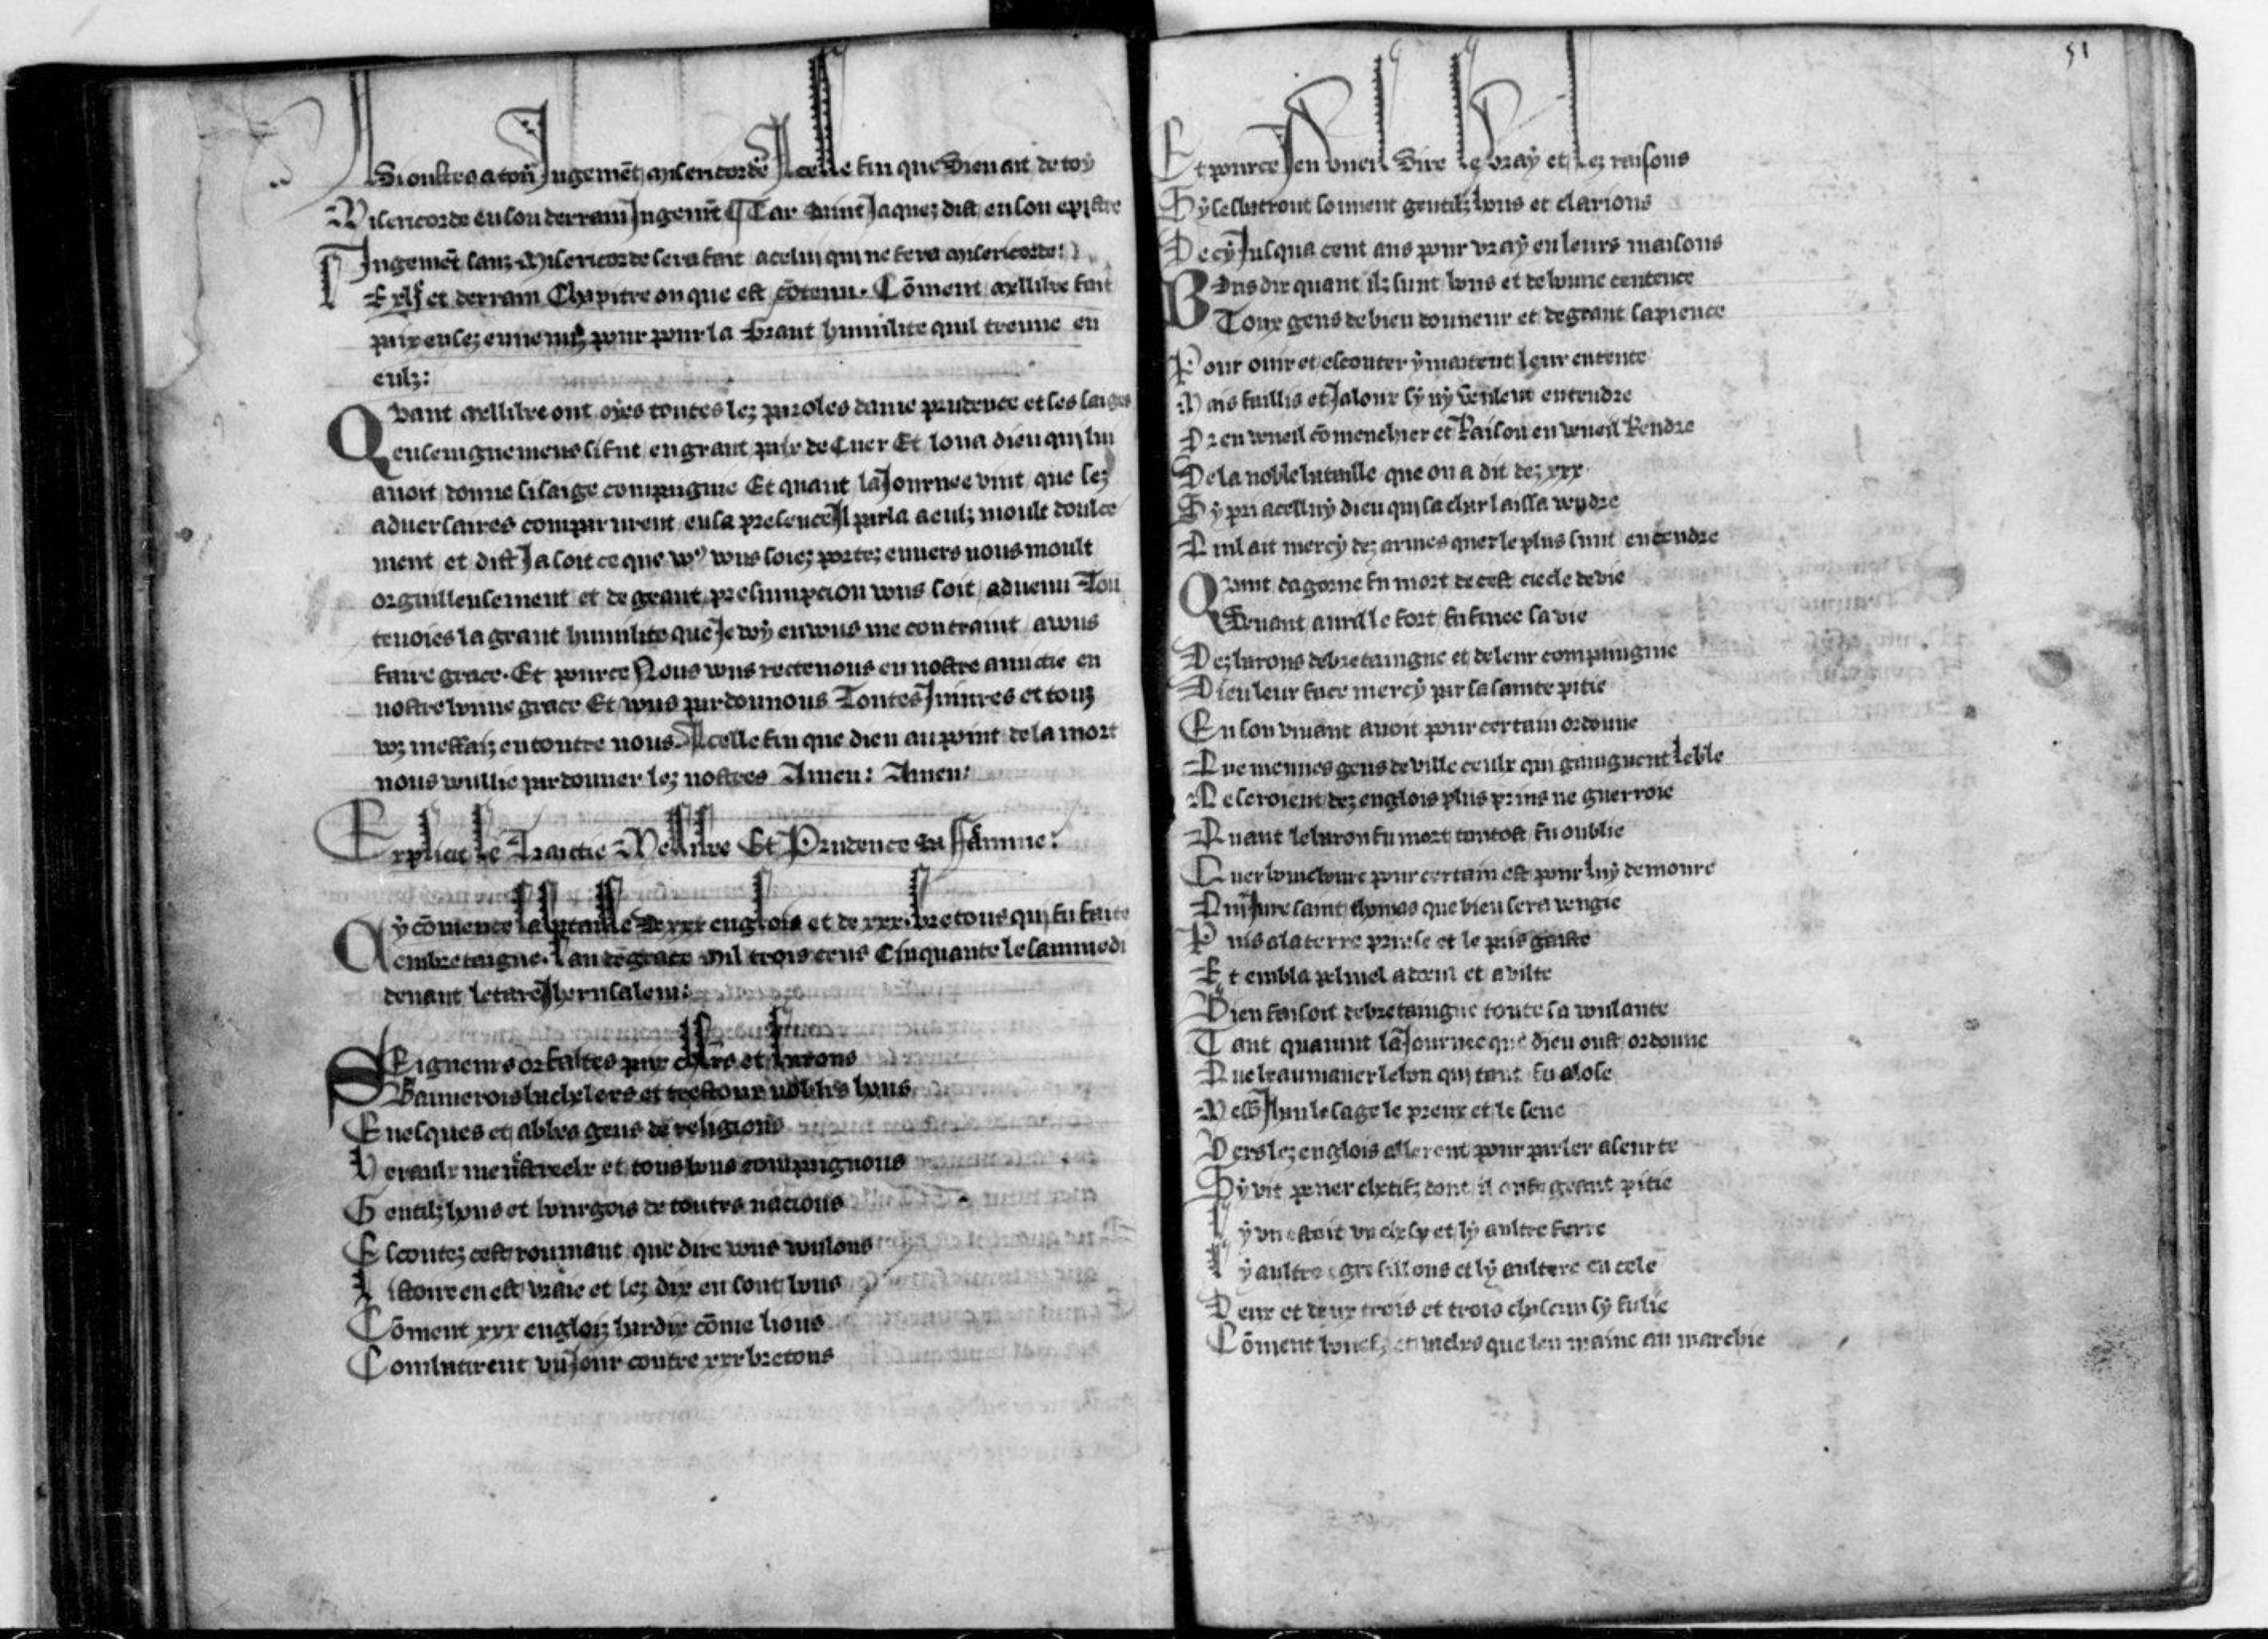 Adioustes a ton Jugemēt misericorde A celle fin que dieu ait de toy
Misericorde en son derrain Jugemt Car saint Jaques dist en son epistre
Jugemēt sans misericorde sera fait a celui qui ne fera misericorde
et derrain Chapitre ou que est cōtenu. Cōment mellibe fait
paix en sez ennemis pour pour la grant humilite quil treuue en
eulz:
Quant mellibe ont oyes toutes lez paroles dame prudence et ses saiges
enseingnemens si fut en grant paix de Cuer Et loua dieu qui lui
auoit donne si saige compaignie Et quant la Journee vint que lez
aduersaires comparurent en sa presence Il parla a eulz moult doulce
ment et dist Ja soit ce que vous soiez portez enuers nous moult
orguilleusement et de grant presumpcion vous soit aduenu Tou
teuoies la grant humilite que Je voy en vous me contraint a vous
faire grace. Et pource Nous vous receuons en nostre amictie en
nostre bonne grace Et vous pardonnons Toutes Iniures et touz
voz meffaiz encontre nous. A celle fin que dieu au point de la mort
nous vuillie pardonner lez nostres Amen: Amen:
Explicit le Traictie Mellibe Et Prudence sa ffamme:
Cy cōmence la bataille de xxx englois et de xxx. bretons qui fu faite
en bretaigne. Lan de grace mil trois cens Cinquante le sammedi
deuant letare Jherusalem:
Seigneurs or faites paix chlrs et barons
Bannerois bachelers et trestoux nobles hons
Euesques et abbes gens de religions
Heraulx menestreelx et tous bons compaignons
Gentilz hons et bourgois de toutes nacions
Escoutez cest roumant que dire vous voulons
Listoire en est vraie et lez dix en sont bons
Cōment xxx englois hardix cōme lions
Combatirent vn Jour contre xxx bretons
51
Et pource Jen vueil dire le vray et lez raisons
Sy sesbatront souuent gentilz hons et clarions
De cy Jusqua cent ans pour vray en leurs maisons
Bons dix quant ilz sunt bons et de bonne sentence
Toux gens de bien donneur et de grant sapience
Pour ouir et escouter y mattent leur entente
Mais faillis et Jaloux sy ny veulent entendre
Or en vueil cōmenchier et Raison en vueil Rendre
De la noble bataille que on a dit dez xxx
Sy pri a celluy dieu qui sa char laissa vendre
Quil ait mercy dez armes quer le plus sunt en cendre
Quant dagorne fu mort de cest ciecle devie
Deuant auril le fort fu finee sa vie
Dez barons de bretaingne et de leur compaingnie
Dieu leur face mercy par sa sainte pitie
En son viuant auoit pour certain ordonne
Que menues gens de ville ceulx qui gaingnent le ble
Ne seroient dez englois plus prins ne guerroie
Quant le baron fu mort tantost fu oublie
Quer bomebourc pour certain est pour luy demoure
Qui Jure saint thomas que bien sera vengie
Puis a la terre prinse et le pais gaste
Et embla pelmel a doeul et a vilte
Bien faisoit de bretaingne toute sa voulante
Tant quauint la Journee que dieu oust ordonne
Que beaumaner le bon qui tant fu alose
Messr Jhan le sage le preux et le sene
Vers lez englois allerent pour parler a seurte
Sy vit pener chetifz dont il oust grant pitie
Ly vn estoit vn chep et ly aultre ferre
Ly aultre gresillons et ly aultere en cele
Deux et deux trois et trois chascun sy fu lie
Cōment bouefz et vaches que len maine au marchie